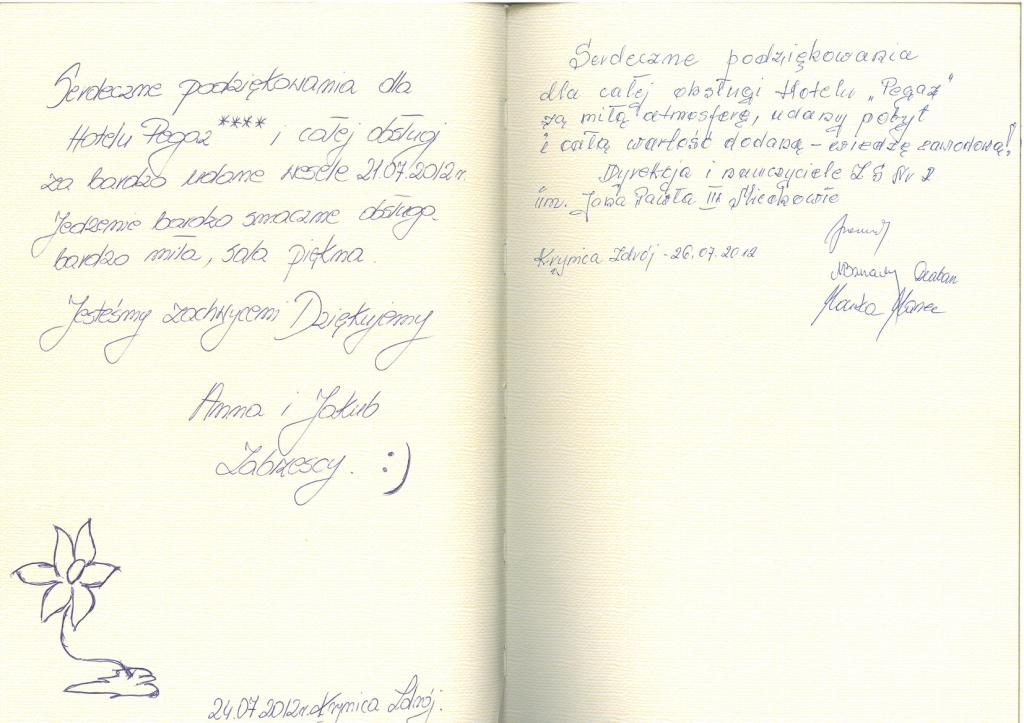 Serdeczne podziękowania dla
Hotelu Pegaz **** i całej obsługi
za bardzo udane wesele 21.07.2012r.
Jedzenie bardzo smaczne obsługa
bardzo miła, sala piękna.
Jesteśmy zachwyceni Dziękujemy
Anna i Jakub
Zabrzescy. :)
24.07.2012r. Krynica Zdrój.
Serdeczne podziękowania
dla całej obsługi Hotelu „Pegaz"
za miłą atmosferę, udany pobyt
i całą wartość dodaną - wiedzę zawodową!
Dyrekcja i nauczyciele ZS Nr 2
im. Jana Pawła II w
Krynica Zdrój - 26.07.2012